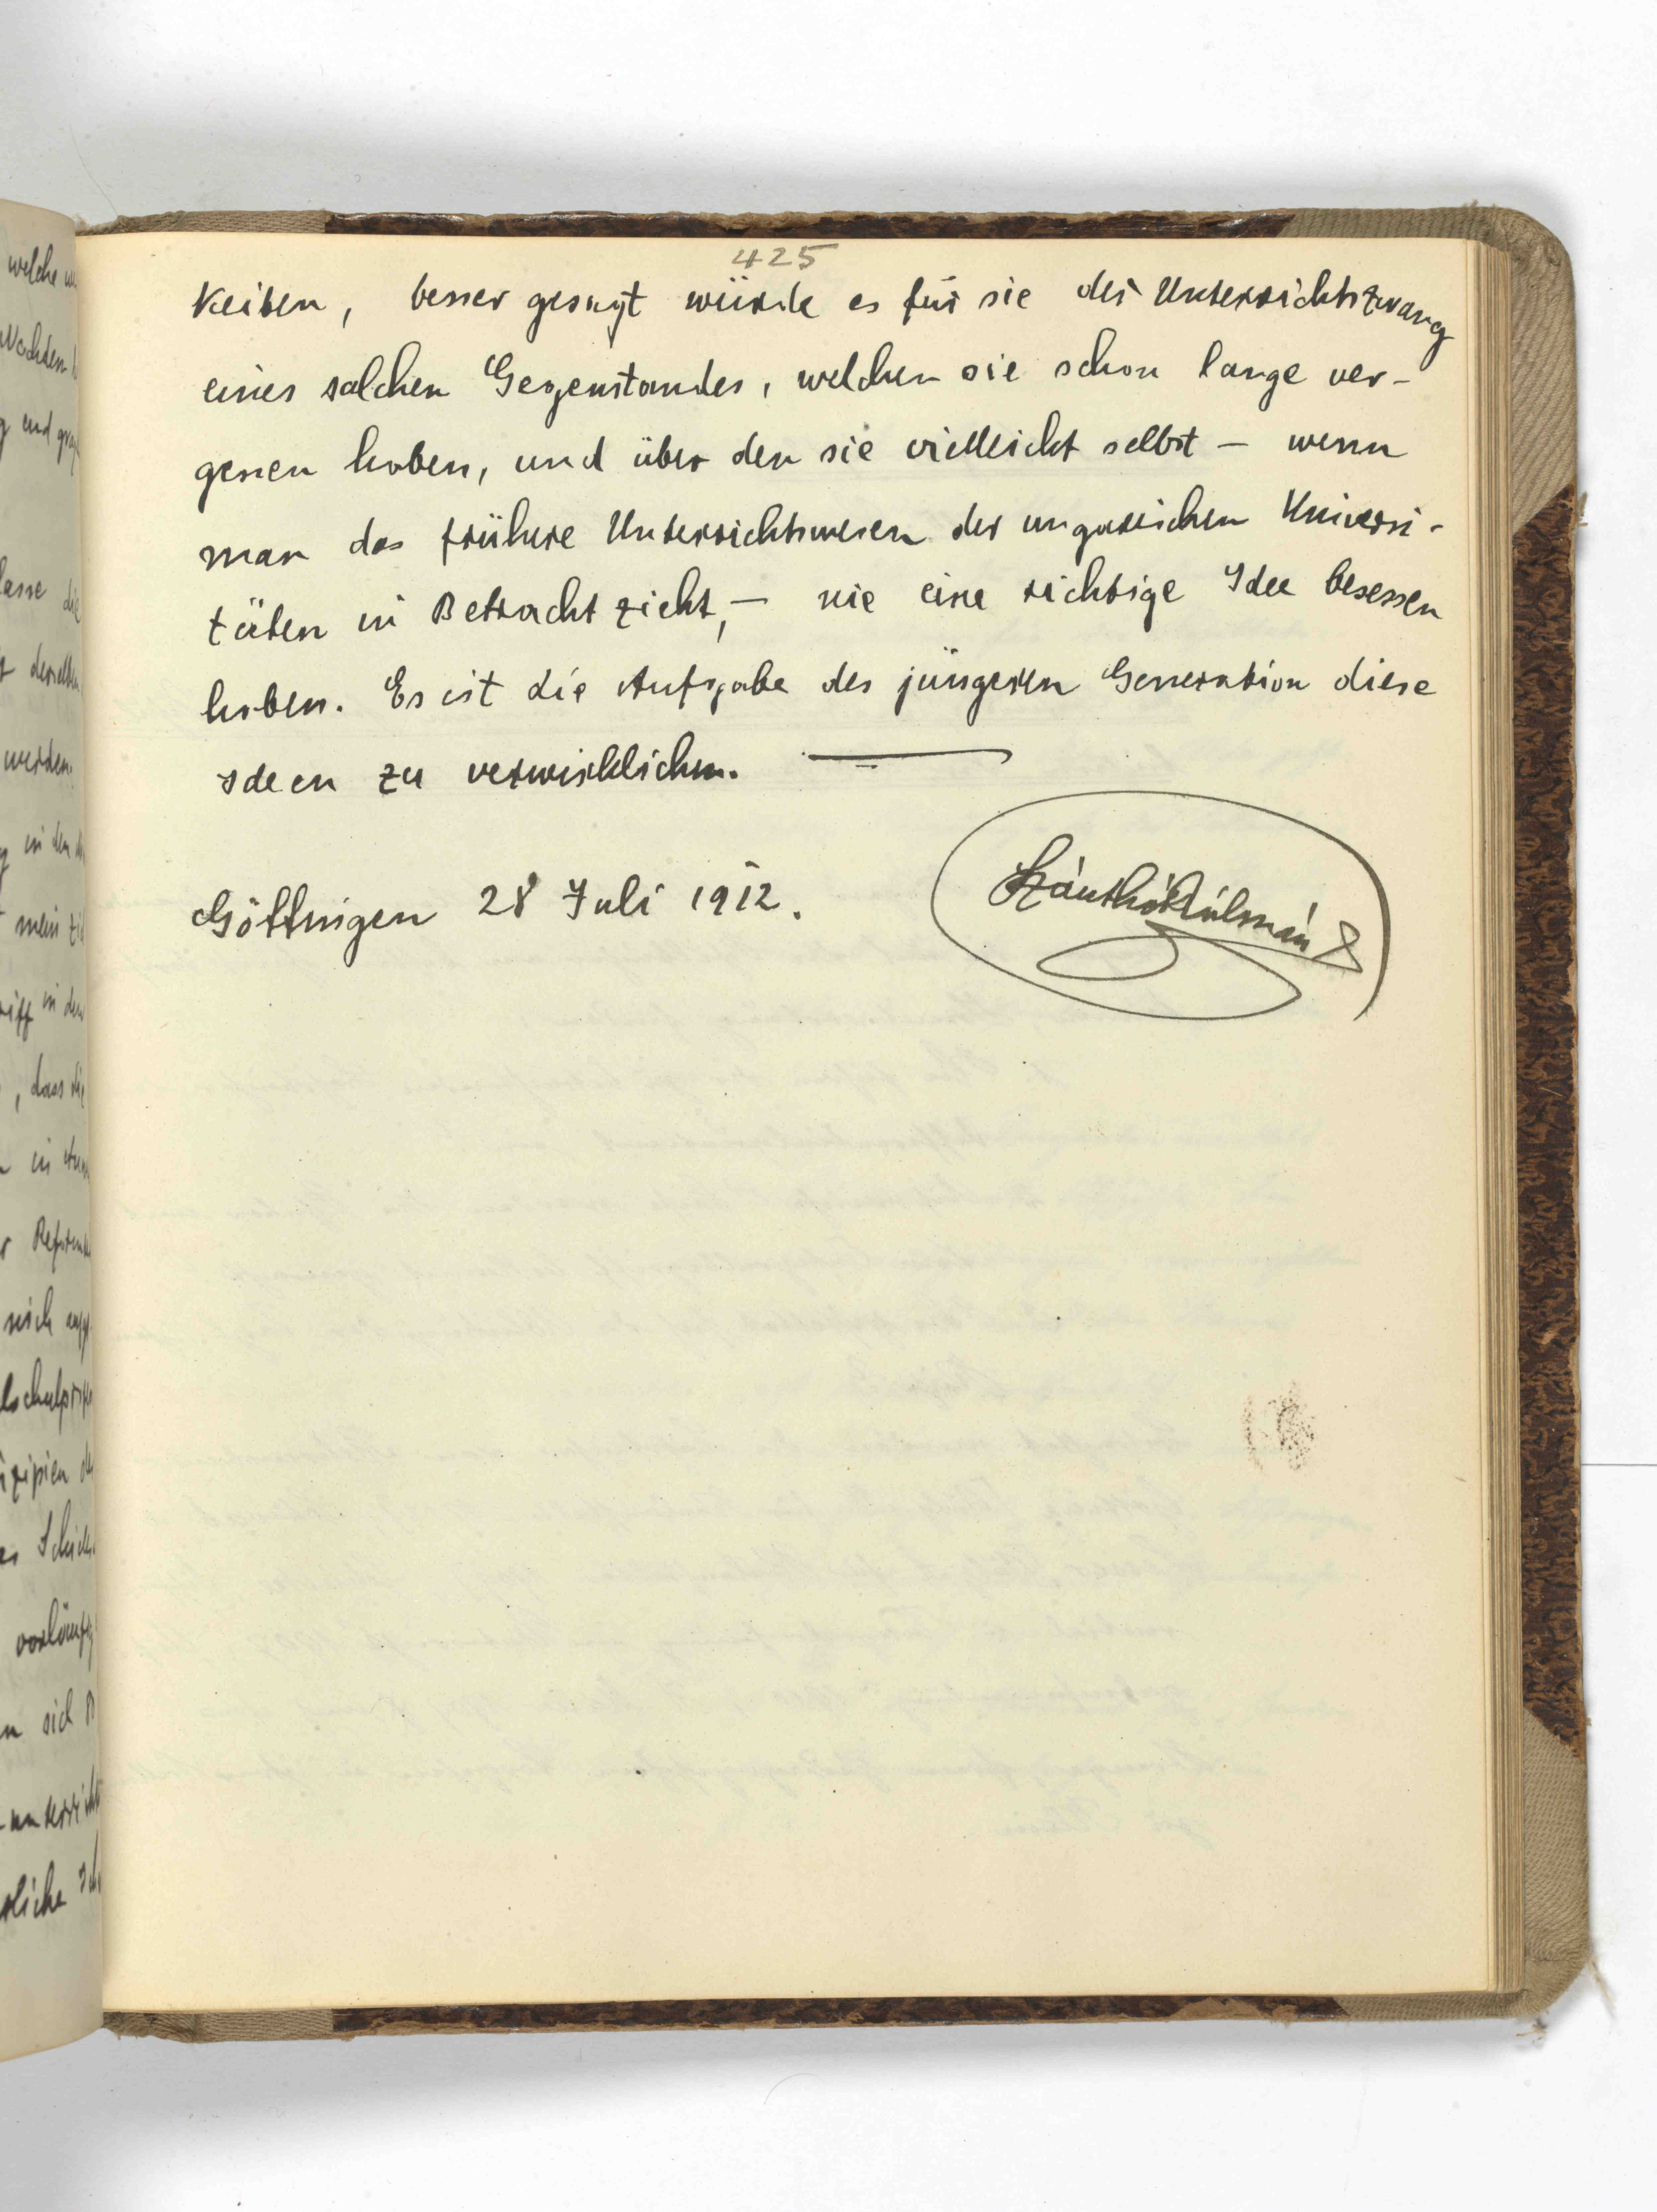 425
keiten, besser gesagt würde es für sie der Unterrichtszwang
eines solchen Gegenstandes, welchen sie schon lange ver-
gessen haben, und über den sie vielleicht selbst – wenn
man das frühere Unterrichtswesen der ungarischen Universi-
täten in Betracht zieht, – nie eine richtige Idee besessen
haben. Es ist die Aufgabe der jüngeren Generation diese
Ideen zu verwirklichen.
Göttingen 28 Juli 1912.
Szánthó Kálmán
welche
Wochen
und
die
derselben
werden.
in den
mein
in dem
, dass die
in
sich
vorläufig
sich